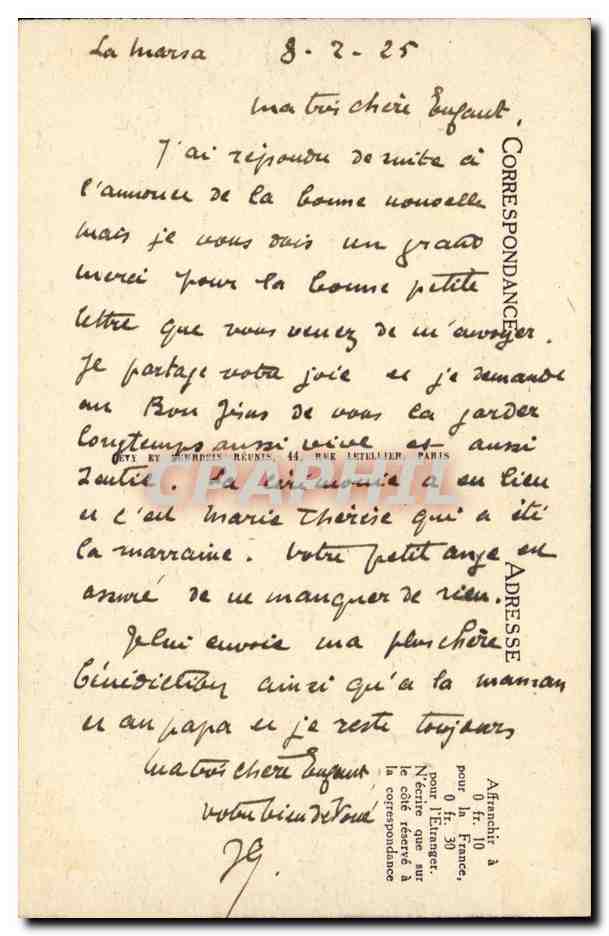 La Marsa 8-2-25
Ma très chère Enfant,
J'ai répondu de suite à
l'annonce de la bonne nouvelle
mais je vous dois un grand
merci pour la bonne petite
lettre que vous venez de m'envoyer.
Je partage votre joie et je demande
au Bon Jésus de vous la garder
longtemps aussi vive et aussi
gentille. La cérémonie a eu lieu
et c'est Marie Thérèse qui a été
la marraine. Votre petit ange est
assuré de ne manquer de rien.
Je lui envoie ma plus chère
bénédiction ainsi qu'à la maman
et au papa et je reste toujours
Ma très chère Enfant
votre bien dévoué
CORRESPONDANCE
ADRESSE
LÉVY ET NEURDEIN RÉUNIS, 44, RUE LETELLIER, PARIS
CPAPHIL
Affranchir à
0 fr. 10
pour la France,
0 fr. 30
pour l'Etranger.
N'écrire que sur
le côté réservé à
la correspondance